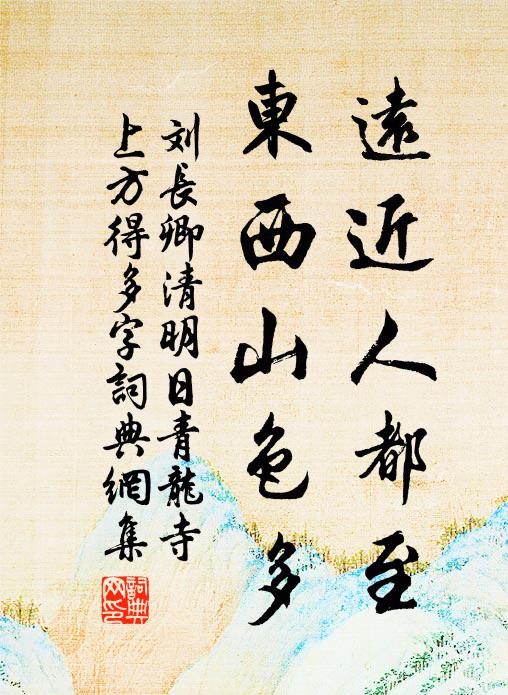 遠近人都至
東西山色多
刘長卿清明日青龍寺
上方得多字詞典網集
詞典
网印